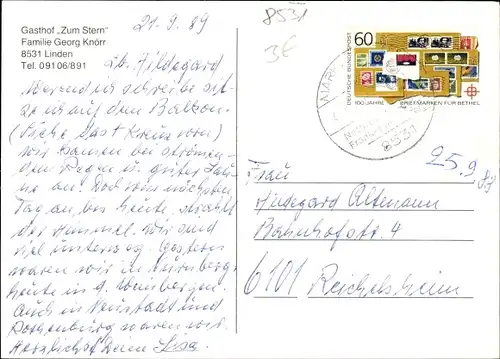 Gasthof „Zum Stern"
Familie Georg Knörr
8531 Linden
Tel. 09106/891
21.9.89
8531
3€
Lb. Hildegard
Während ich schreibe sit-
ze ich auf dem Balkon.
(Siehe das + Kreuz vorn)
wir kamen bei strömen-
dem Regen u. guter Lau-
ne an. Doch am nächsten
Tag an, bis heute, strahlt
der Himmel. Wir sind
viel unterwegs. Gestern
waren wir in Nürnberg
heute in d. Weinbergen.
Auch in Neustadt und
Rothenburg waren wir.
Herzlichst Deine
60
DEUTSCHE BUNDESPOST
100 JAHRE BRIEFMARKEN FÜR BETHEL
8531
25.9.89
Frau
Hildegard Altmann
Bahnhofstr. 4
6101 Reichelsheim